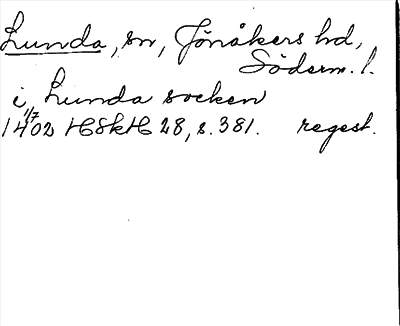 Lunda, sn, Jönåkers hd,
Söderm. l.
i Lunda socken
1/7
1402 HSkH 28, s. 381. regest.